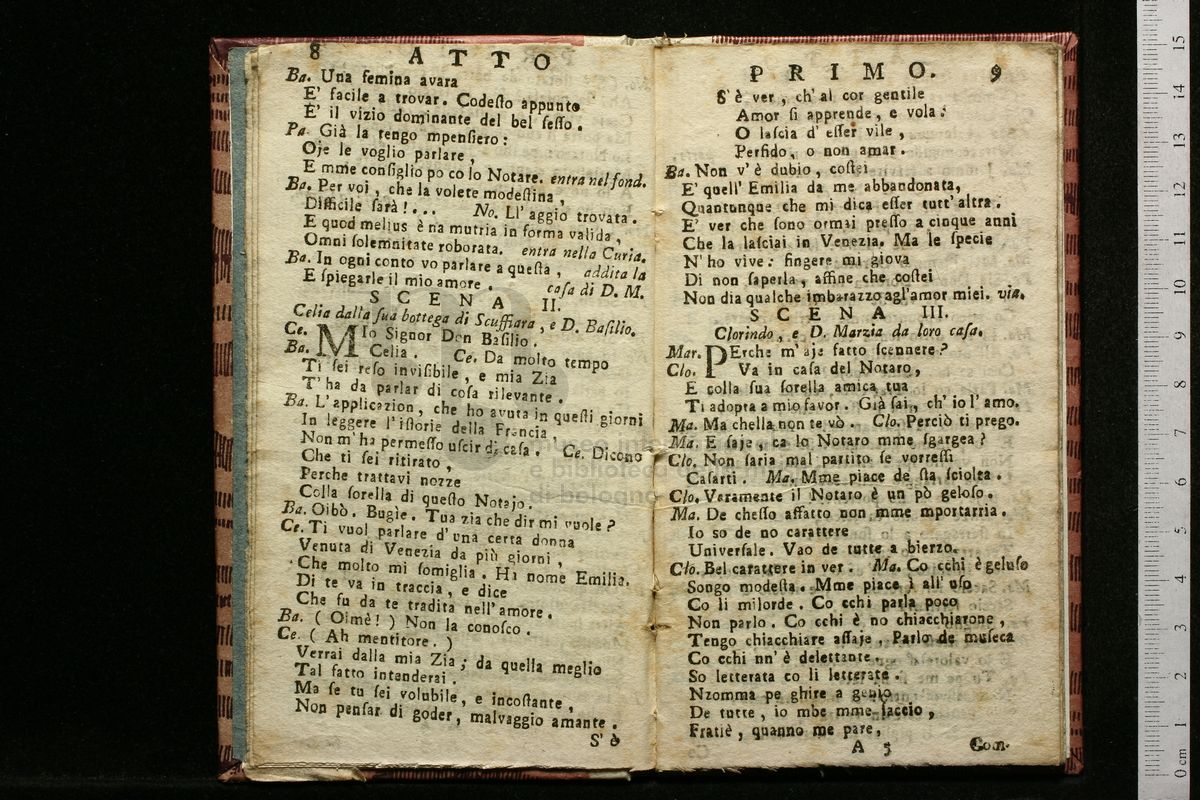 8 ATTO
Ba. Una femina avara
E' facile a trovar. Codeſto appunto
E' il vizio dominante del bel ſeſſo.
Pa. Già la tengo mpenſiero:
Oje le voglio parlare,
E mme conſiglio po co lo Notare. entra nel fond.
Ba. Per voi, che la volete modeſtina,
Difficile ſarà!... No. Ll' aggio trovata.
E quod melius è na mutria in forma valida,
Omni ſolemnitate roborata. entra nella Curia.
Ba. In ogni conto vo parlare a queſta, addita la
E ſpiegarle il mio amore. caſa di D. M.
SCENA II.
Celia dalla ſua bottega di Scuffiara, e D. Baſilio.
Ce. MIo Signor Don Baſilio.
Ba. Celia. Ce. Da molto tempo
Ti ſei reſo inviſibile, e mia Zia
T' ha da parlar di coſa rilevante.
Ba. L'applicazion, che ho avuta in queſti giorni
In leggere l'iſtorie della Francia
Non m' ha permeſſo uſcir di caſa. Ce. Dicono
Che ti ſei ritirato,
Perche trattavi nozze
Colla ſorella di queſto Notajo.
Ba. Oibò. Bugie. Tua zia che dir mi vuole?
Ce. Ti vuol parlare d'una certa donna
Venuta di Venezia da più giorni,
Che molto mi ſomiglia. Ha nome Emilia.
Di te va in traccia, e dice
Che fu da te tradita nell'amore.
Ba. (Oimè!) Non la conoſco.
Ce. (Ah mentitore.)
Verrai dalla mia Zia; da quella meglio
Tal fatto intenderai.
Ma ſe tu ſei volubile, e incoſtante,
Non penſar di goder, malvaggio amante.
S' è
PRIMO. 9
S'è ver, ch'al cor gentile
Amor ſi apprende, e vola:
O laſcia d' eſſer vile,
Perfido, o non amar.
Ba. Non v' è dubio, coſtei
E' quell' Emilia da me abbandonata,
Quantunque che mi dica eſſer tutt'altra.
E' ver che ſono ormai preſſo a cinque anni
Che la laſciai in Venezia. Ma le ſpecie
N' ho vive: fingere mi giova
Di non ſaperla, affine che coſtei
Non dia qualche imbarazzo agl'amor miei. via.
SCENA III.
Clorindo, e D. Marzia da loro caſa.
Mar. PErche m'aje fatto ſcennere?
Clo. Va in caſa del Notaro,
E colla ſua ſorella amica tua
Ti adopta a mio favor. Già ſai, ch' io l' amo.
Ma. Ma chella non te vò. Clo. Perciò ti prego.
Ma. E ſaje, ca lo Notaro mme ſgargea?
Clo. Non ſaria mal partito ſe vorreſſi
Caſarti. Ma. Mme piace de ſta ſciolta.
Clo. Veramente il Notaro è un pò geloſo.
Ma. De cheſſo affatto non mme mportarria.
Io so de no carattere
Univerſale. Vao de tutte a bierzo.
Clo. Bel carattere in ver. Ma. Co cchi è geluſo
Songo modeſta. Mme piace ì all' uſo
Co li milorde. Co cchi parla poco
Non parlo. Co cchi è no chiacchiarone,
Tengo chiacchiare aſſaje, Parlo de muſeca
Co cchi nn' è delettante,
So letterata co li letterate.
Nzomma pe ghire a genio
De tutte, io mbe mme faccio,
Fratiè, quanno me pare,
A 5 Com-